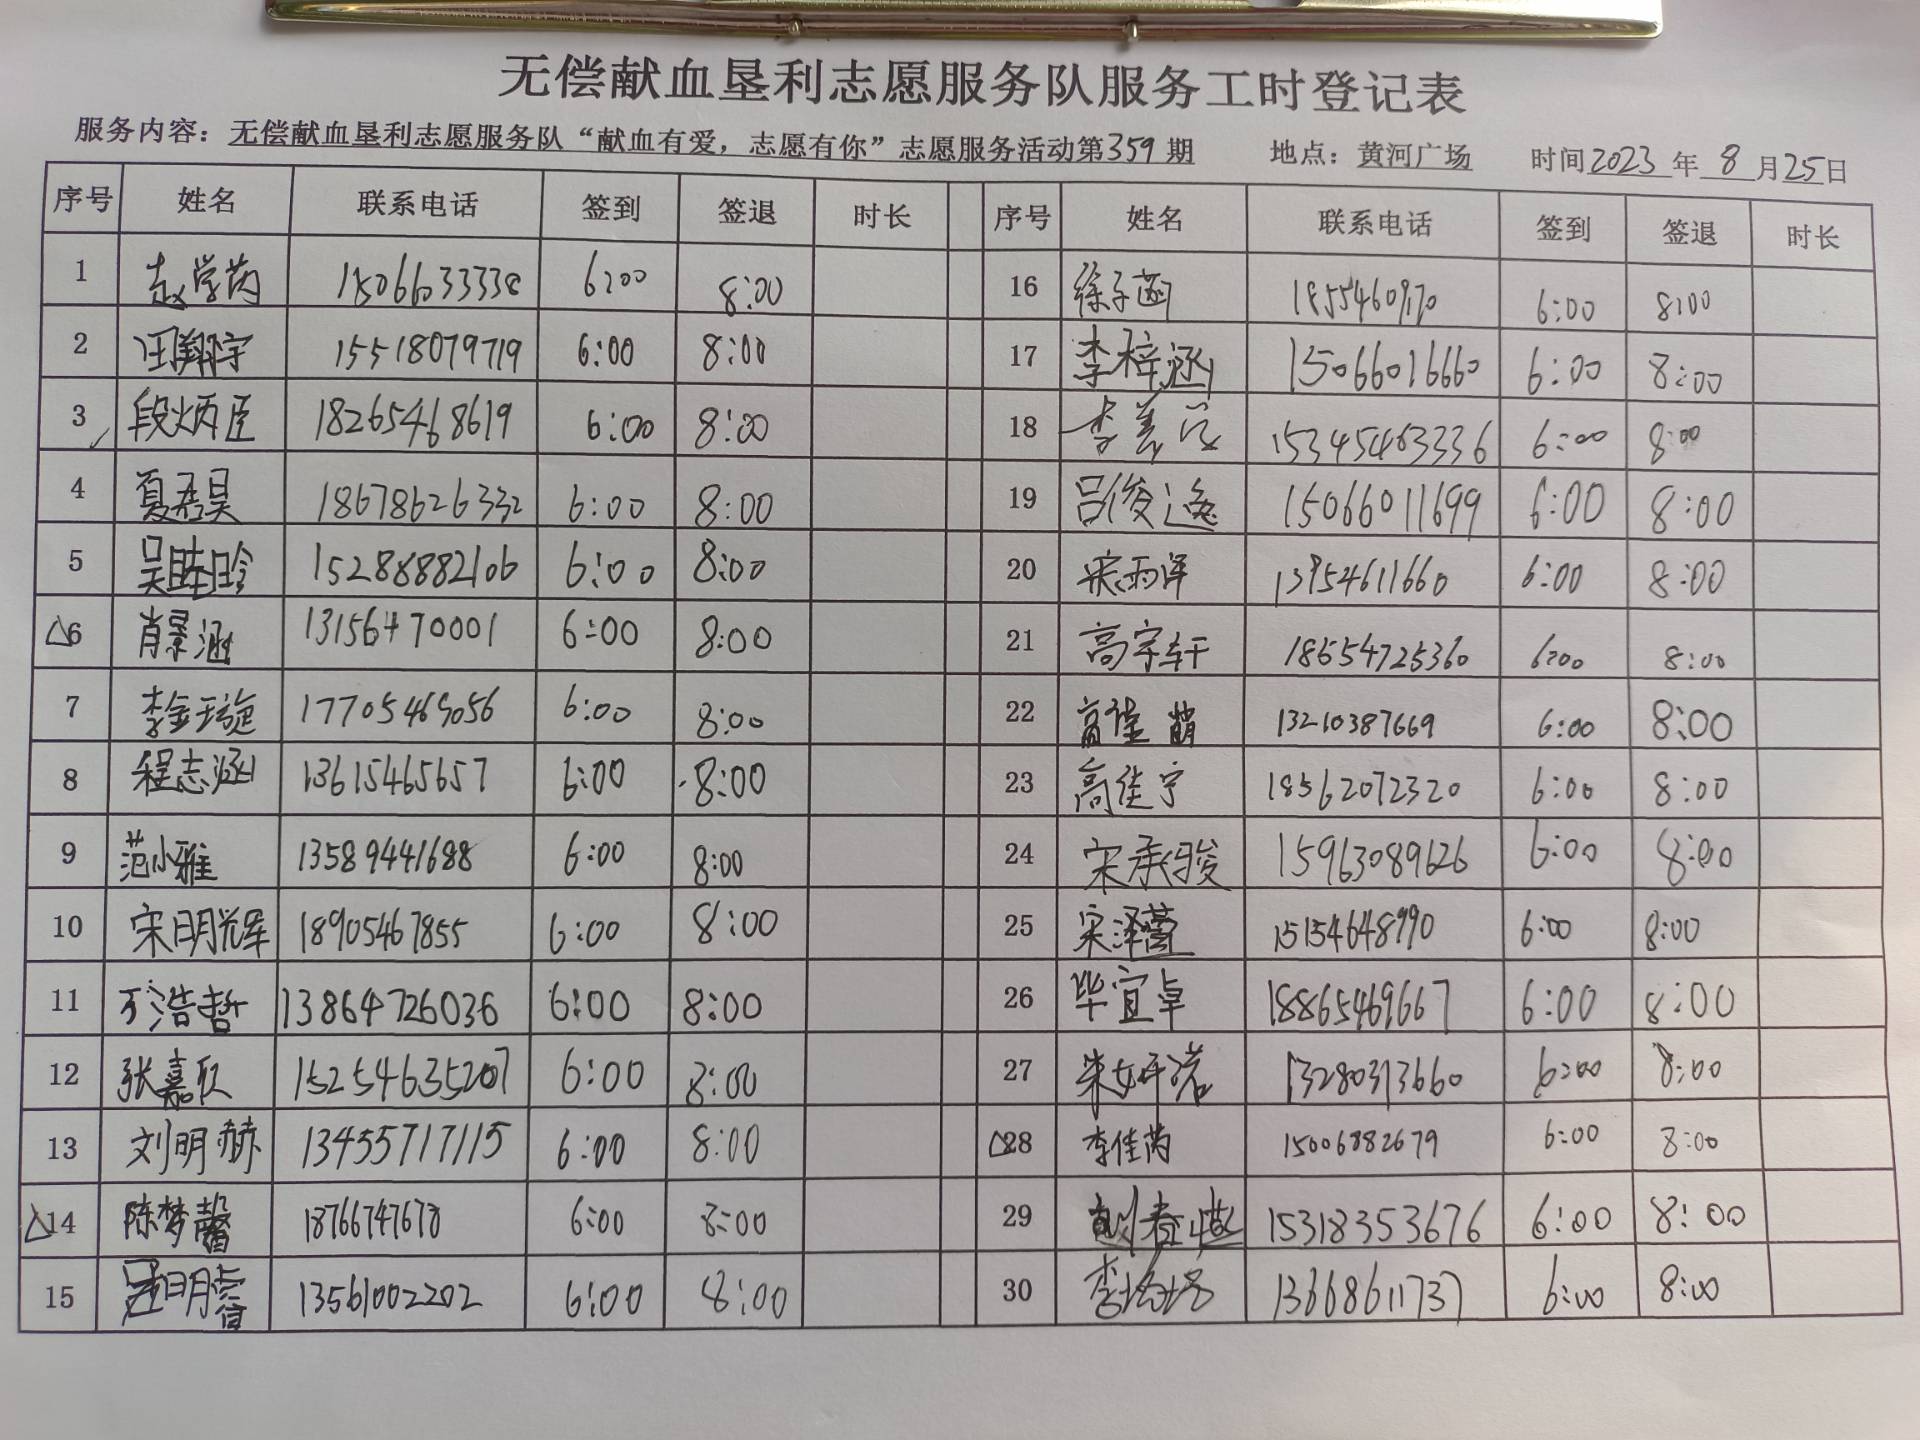 无偿献血垦利志愿服务队服务工时登记表
服务内容：无偿献血垦利志愿服务队“献血有爱，志愿有你”志愿服务活动第359期 地点：黄河广场 时间2023年8月25日
序号 姓名 联系电话 签到 签退 时长 序号 姓名 联系电话 签到 签退 时长
1 赵学芮 15066033338 6:00 8:00 16 徐子涵 6:00 8:00
2 汪翔宇 15518079719 6:00 8:00 17 李梓涵 15066016660 6:00 8:00
3 段炳臣 18265468619 6:00 8:00 18 李 15345463336 6:00 8:00
4 夏君昊 18678626332 6:00 8:00 19 吕俊逸 15066011699 6:00 8:00
5 15288882106 6:00 8:00 20 宋雨泽 13954611660 6:00 8:00
△6 肖景涵 13156470001 6:00 8:00 21 高宇轩 18654725360 6:00 8:00
7 李金璇 17705469056 6:00 8:00 22 高佳萌 13210387669 6:00 8:00
8 程志涵 13615465657 6:00 8:00 23 高佳宁 18562072320 6:00 8:00
9 范小雅 13589441688 6:00 8:00 24 宋承骏 15963089626 6:00 8:00
10 宋明辉 18905467855 6:00 8:00 25 宋泽萱 15154648990 6:00 8:00
11 万浩哲 13864726036 6:00 8:00 26 毕宜卓 18865469667 6:00 8:00
12 张嘉欣 15254635207 6:00 8:00 27 朱妍诺 13280313660 6:00 8:00
13 刘明赫 13455717115 6:00 8:00 △28 李佳芮 15006882679 6:00 8:00
△14 陈梦馨 18766747678 6:00 8:00 29 15318353676 6:00 8:00
15 13561002202 6:00 8:00 30 李 13668611737 6:00 8:00